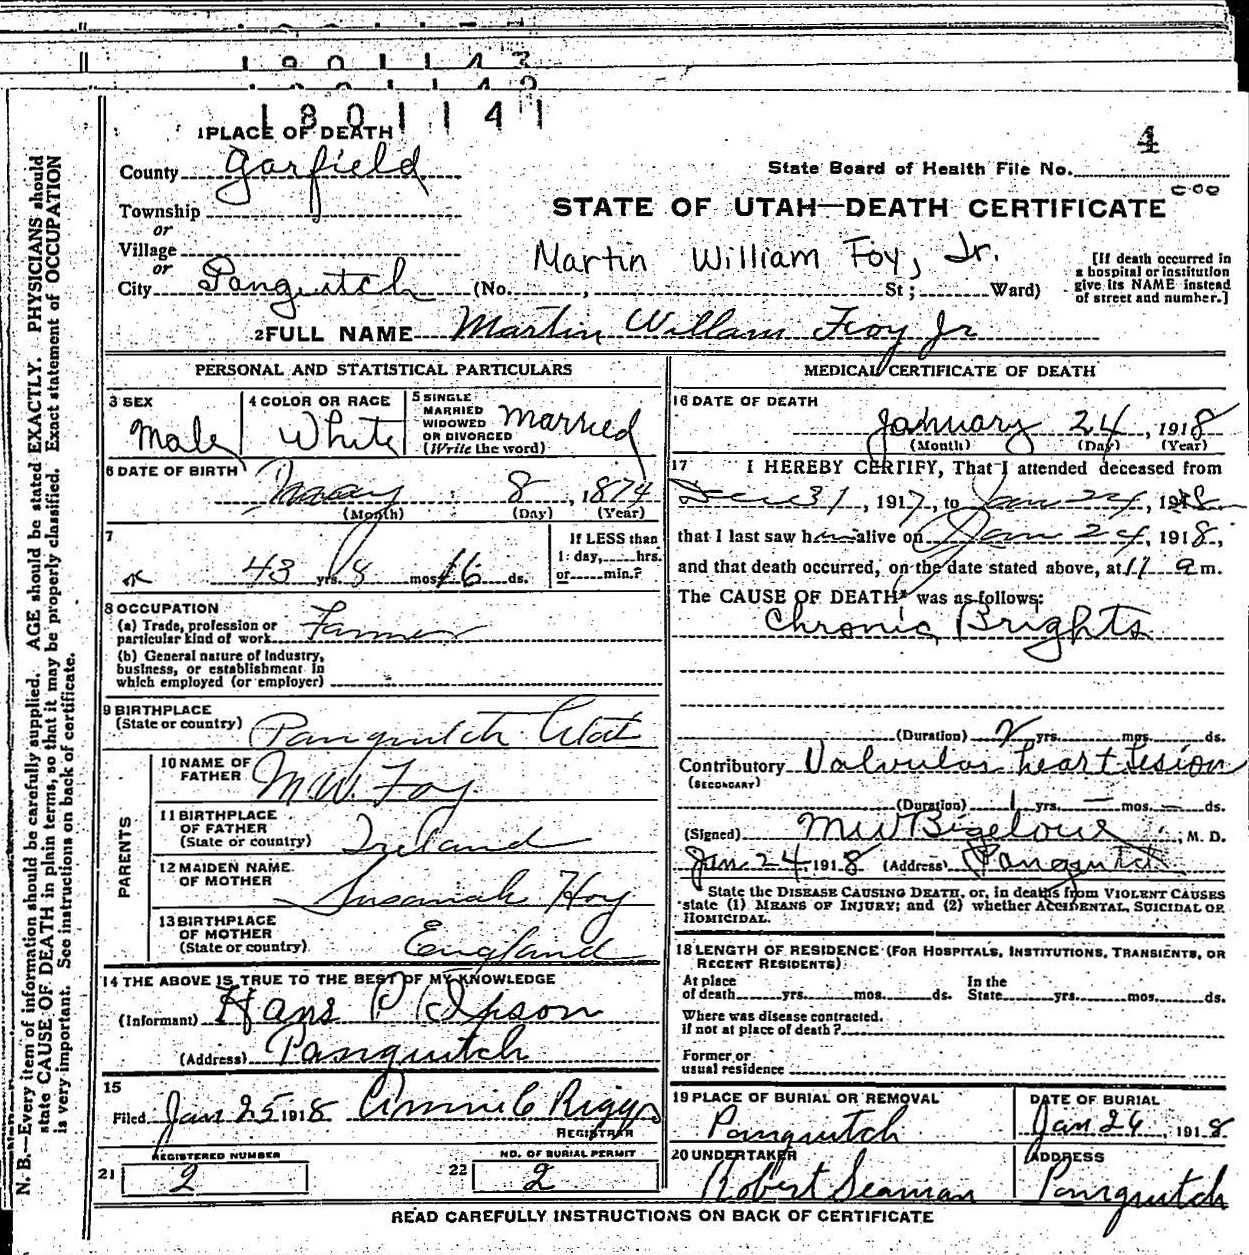 1801141
4
1 PLACE OF DEATH
County Garfield
State Board of Health File No.
Township
or
STATE OF UTAH—DEATH CERTIFICATE
Village
or
Martin William Foy, Jr.
[If death occurred in
a hospital or institution
give its NAME instead
of street and number.]
City Panguitch (No. , St; Ward)
2 FULL NAME Martin William Foy Jr
PERSONAL AND STATISTICAL PARTICULARS
3 SEX Male
4 COLOR OR RACE White
5 SINGLE
MARRIED
WIDOWED
OR DIVORCED
(Write the word) Married
6 DATE OF BIRTH May 8, 1874
(Month) (Day) (Year)
7 43 yrs. 8 mos. 16 ds.
If LESS than
1 day, hrs.
or min.?
8 OCCUPATION
(a) Trade, profession or
particular kind of work Farmer
(b) General nature of Industry,
business, or establishment in
which employed (or employer)
9 BIRTHPLACE
(State or country) Panguitch Utah
PARENTS
10 NAME OF
FATHER M W. Foy
11 BIRTHPLACE
OF FATHER
(State or country) Ireland
12 MAIDEN NAME
OF MOTHER Susanah Hoy
13 BIRTHPLACE
OF MOTHER
(State or country) England
14 THE ABOVE IS TRUE TO THE BEST OF MY KNOWLEDGE
(Informant) Hans P Ipson
(Address) Panguitch
15
Filed Jan 25 1918 Annie C Riggs
REGISTRAR
REGISTERED NUMBER
21 2
NO. OF BURIAL PERMIT
22 2
MEDICAL CERTIFICATE OF DEATH
16 DATE OF DEATH
January 24, 1918
(Month) (Day) (Year)
17 I HEREBY CERTIFY, That I attended deceased from
Dec 31, 1917, to Jan 24, 1918
that I last saw him alive on Jan 24, 1918,
and that death occurred, on the date stated above, at 11 a m.
The CAUSE OF DEATH* was as follows:
Chronic Brights
(Duration) 2 yrs. mos. ds.
Contributory Valvular heart lesion
(SECONDARY)
(Duration) 1 yrs. — mos. — ds.
(Signed) M W Bigelow, M. D.
Jan 24, 1918 (Address) Panguitch
State the DISEASE CAUSING DEATH, or, in deaths from VIOLENT CAUSES
state (1) MEANS OF INJURY; and (2) whether ACCIDENTAL, SUICIDAL OR
HOMICIDAL.
18 LENGTH OF RESIDENCE (FOR HOSPITALS, INSTITUTIONS, TRANSIENTS, OR
RECENT RESIDENTS)
At place
of death yrs. mos. ds.
In the
State yrs. mos. ds.
Where was disease contracted.
if not at place of death?
Former or
usual residence
19 PLACE OF BURIAL OR REMOVAL
Panguitch
DATE OF BURIAL
Jan 26, 1918
20 UNDERTAKER
Robert Seaman
ADDRESS
Panguitch
READ CAREFULLY INSTRUCTIONS ON BACK OF CERTIFICATE
N. B.—Every item of information should be carefully supplied. AGE should be stated EXACTLY. PHYSICIANS should
state CAUSE OF DEATH in plain terms, so that it may be properly classified. Exact statement of OCCUPATION
is very important. See instructions on back of certificate.